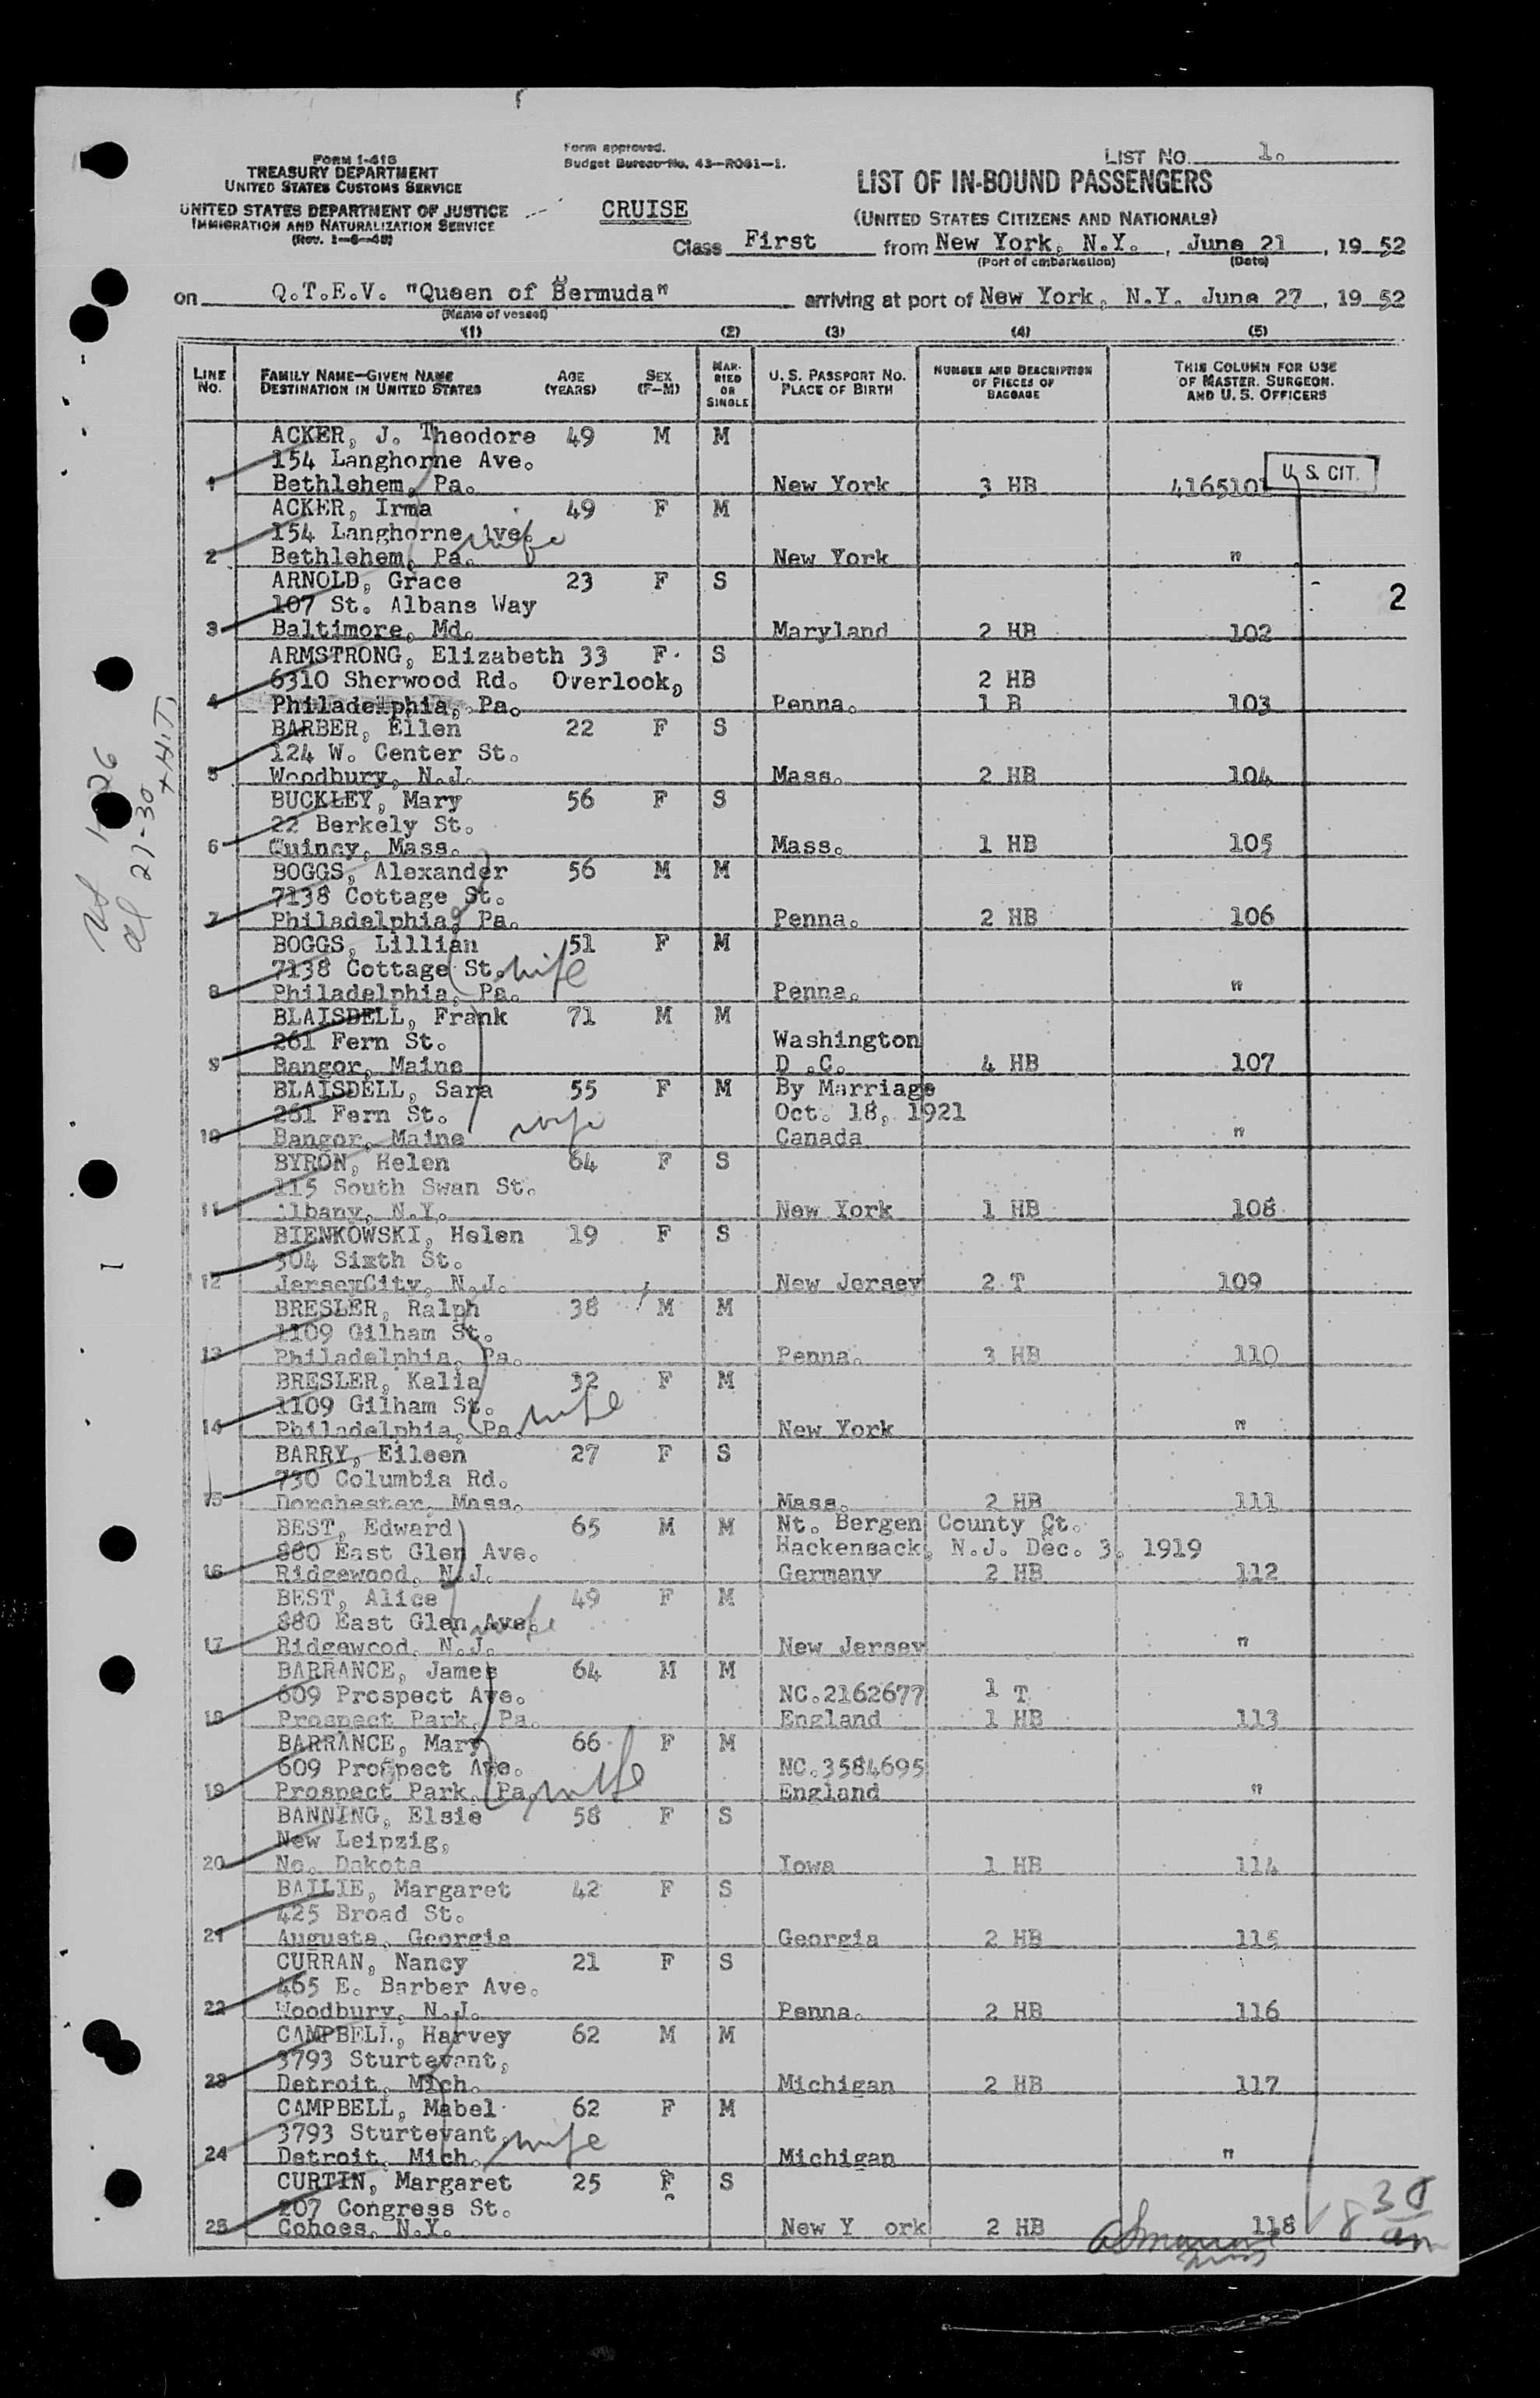 Form approved.
Budget Bureau No. 43—R061—1.
LIST NO. 1.
FORM I-418
TREASURY DEPARTMENT
UNITED STATES CUSTOMS SERVICE
UNITED STATES DEPARTMENT OF JUSTICE
IMMIGRATION AND NATURALIZATION SERVICE
(Rev. 1—6—48)
CRUISE
LIST OF IN-BOUND PASSENGERS
(UNITED STATES CITIZENS AND NATIONALS)
Class First from New York, N.Y., June 21, 1952
(Port of embarkation) (Date)
on Q.T.E.V. "Queen of Bermuda" arriving at port of New York, N.Y. June 27, 1952
(Name of vessel)
(1) (2) (3) (4) (5)
LINE NO. FAMILY NAME—GIVEN NAME DESTINATION IN UNITED STATES AGE (YEARS) SEX (F—M) MARRIED OR SINGLE U. S. PASSPORT NO. PLACE OF BIRTH NUMBER AND DESCRIPTION OF PIECES OF BAGGAGE THIS COLUMN FOR USE OF MASTER, SURGEON, AND U. S. OFFICERS
ACKER, J. Theodore 49 M M
154 Langhorne Ave.
1 Bethlehem, Pa. New York 3 HB 4165101 U. S. CIT.
ACKER, Irma 49 F M
154 Langhorne Ave. wife
2 Bethlehem, Pa. New York "
ARNOLD, Grace 23 F S
107 St. Albans Way 2
3 Baltimore, Md. Maryland 2 HB 102
ARMSTRONG, Elizabeth 33 F S
6310 Sherwood Rd. Overlook, 2 HB
4 Philadelphia, Pa. Penna. 1 B 103
BARBER, Ellen 22 F S
124 W. Center St.
5 Woodbury, N.J. Mass. 2 HB 104
BUCKLEY, Mary 56 F S
22 Berkely St.
6 Quincy, Mass. Mass. 1 HB 105
BOGGS, Alexander 56 M M
7138 Cottage St.
7 Philadelphia, Pa. Penna. 2 HB 106
BOGGS, Lillian 51 F M
7138 Cottage St. wife
8 Philadelphia, Pa. Penna. "
BLAISDELL, Frank 71 M M
261 Fern St. Washington
9 Bangor, Maine D .C. 4 HB 107
BLAISDELL, Sara 55 F M By Marriage
261 Fern St. wife Oct. 18, 1921
10 Bangor, Maine Canada "
BYRON, Helen 64 F S
115 South Swan St.
11 Albany, N.Y. New York 1 HB 108
BIENKOWSKI, Helen 19 F S
304 Sixth St.
12 JerseyCity, N.J. New Jersey 2 T 109
BRESLER, Ralph 38 M M
1109 Gilham St.
13 Philadelphia, Pa. Penna. 3 HB 110
BRESLER, Kalia 32 F M
1109 Gilham St. wife
14 Philadelphia, Pa. New York "
BARRY, Eileen 27 F S
730 Columbia Rd.
15 Dorchester, Mass. Mass. 2 HB 111
BEST, Edward 65 M M Nt. Bergen County Ct.
880 East Glen Ave. Hackensack, N.J. Dec. 3, 1919
16 Ridgewood, N.J. Germany 2 HB 112
BEST, Alice 49 F M
880 East Glen Ave. wife
17 Ridgewood, N.J. New Jersey "
BARRANCE, James 64 M M
609 Prospect Ave. NC.2162677 1 T
18 Prospect Park, Pa. England 1 HB 113
BARRANCE, Mary 66 F M
609 Prospect Ave. NC.3584695
19 Prospect Park, Pa. wife England "
BANNING, Elsie 58 F S
New Leipzig,
20 No. Dakota Iowa 1 HB 114
BAILIE, Margaret 42 F S
425 Broad St.
21 Augusta, Georgia Georgia 2 HB 115
CURRAN, Nancy 21 F S
465 E. Barber Ave.
22 Woodbury, N.J. Penna. 2 HB 116
CAMPBELL, Harvey 62 M M
3793 Sturtevant,
23 Detroit, Mich. Michigan 2 HB 117
CAMPBELL, Mabel 62 F M
3793 Sturtevant, wife
24 Detroit, Mich. Michigan "
CURTIN, Margaret 25 F S
207 Congress St.
25 Cohoes, N.Y. New Y ork 2 HB 118
21-30